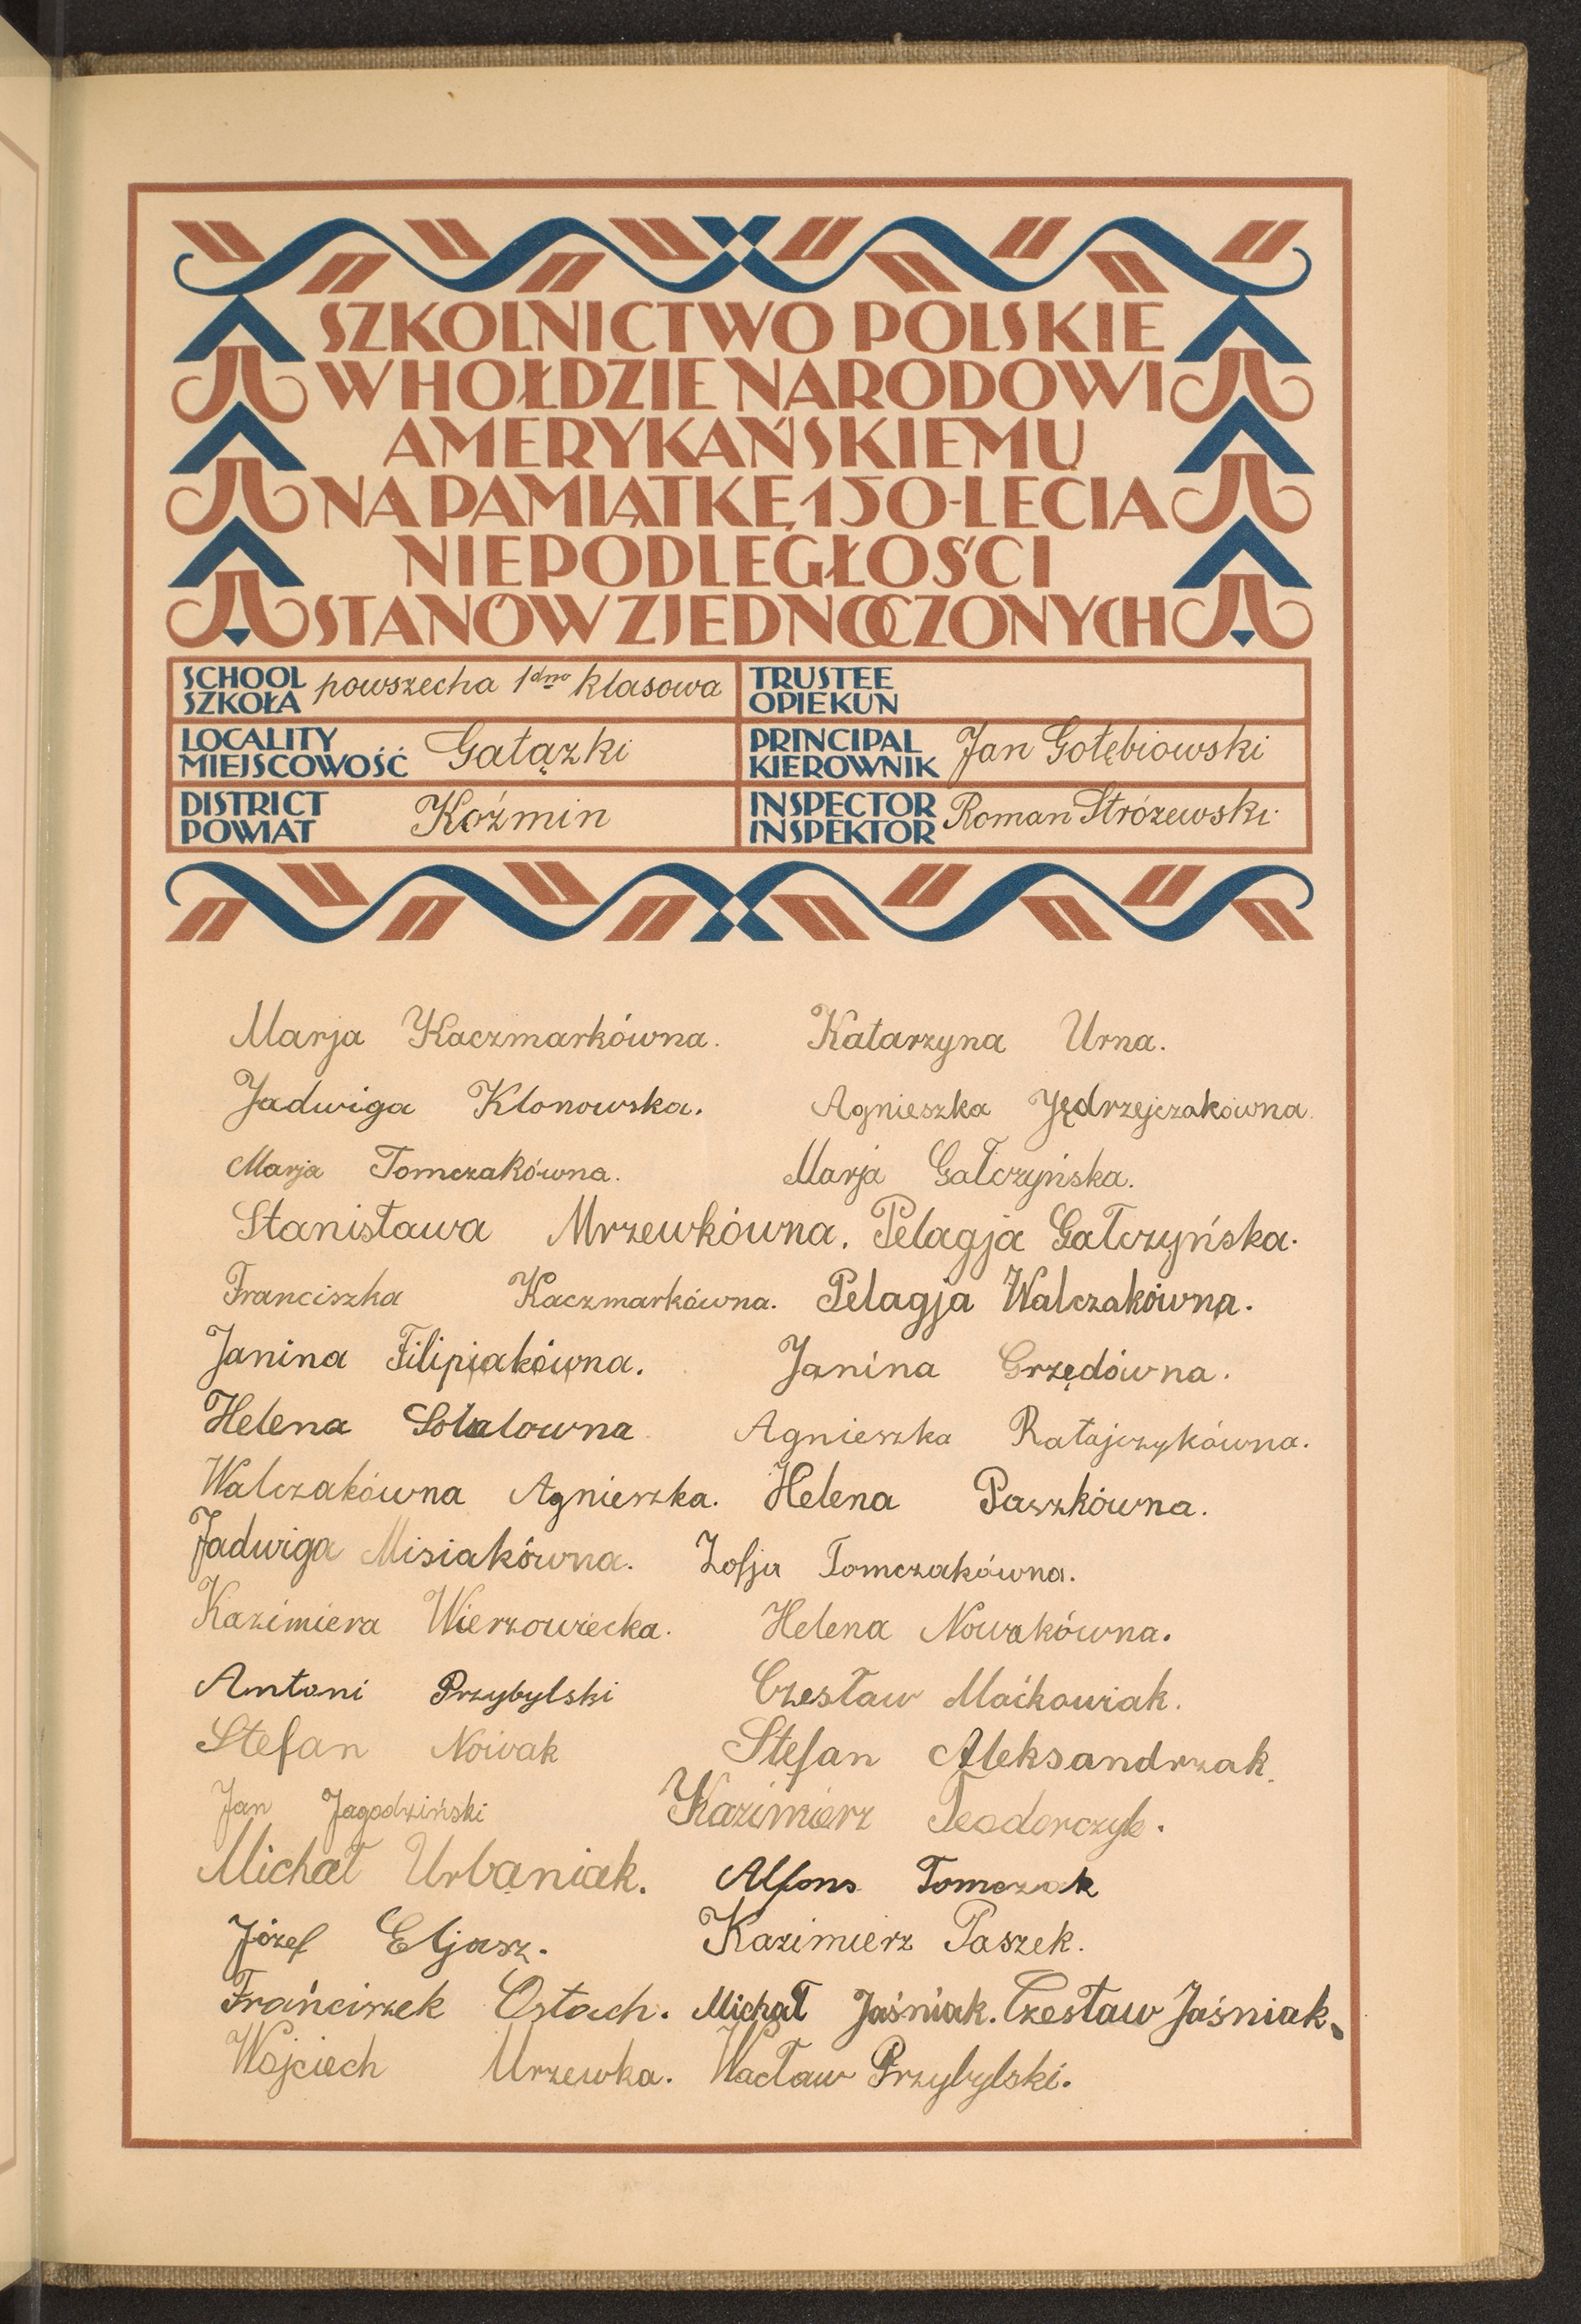 SZKOLNICTWO POLSKIE
W HOŁDZIE NARODOWI
AMERYKAŃSKIEMU
NA PAMIĄTKĘ 150-LECIA
NIEPODLEGŁOŚCI
STANÓW ZJEDNOCZONYCH
SCHOOL
SZKOŁA powszecha 1dno klasowa
TRUSTEE
OPIEKUN
LOCALITY
MIEJSCOWOŚĆ Gałązki
PRINCIPAL
KIEROWNIK Jan Gołębiowski
DISTRICT
POWIAT Koźmin
INSPECTOR
INSPEKTOR Roman Stróżewski
Marja Kaczmarkówna. Katarzyna Urna.
Jadwiga Klonowska. Agnieszka Jędrzejczakówna.
Marja Tomczakówna. Marja Gałczyńska.
Stanisława Mrzewkówna. Pelagja Gałczyńska.
Franciszka Kaczmarkówna. Pelagja Walczakówna.
Janina Filipiakówna. Janina Grzędówna.
Helena Agnieszka Ratajczykówna.
Walczakówna Agnieszka. Helena Paszkówna.
Jadwiga Misiakówna. Zofja Tomczakówna.
Kazimiera Wierzowiecka. Helena Nowakówna.
Antoni Przybylski Czesław Maćkowiak.
Stefan Nowak Stefan Aleksandrzak.
Jan Jagodziński Kazimierz Teodorczyk.
Michał Urbaniak. Alfons Tomczak
Józef Eljasz. Kazimierz Paszek.
Frańciszek Ostach. Michał Jaśniak. Czesław Jaśniak.
Wojciech Mrzewka. Wacław Przybylski.